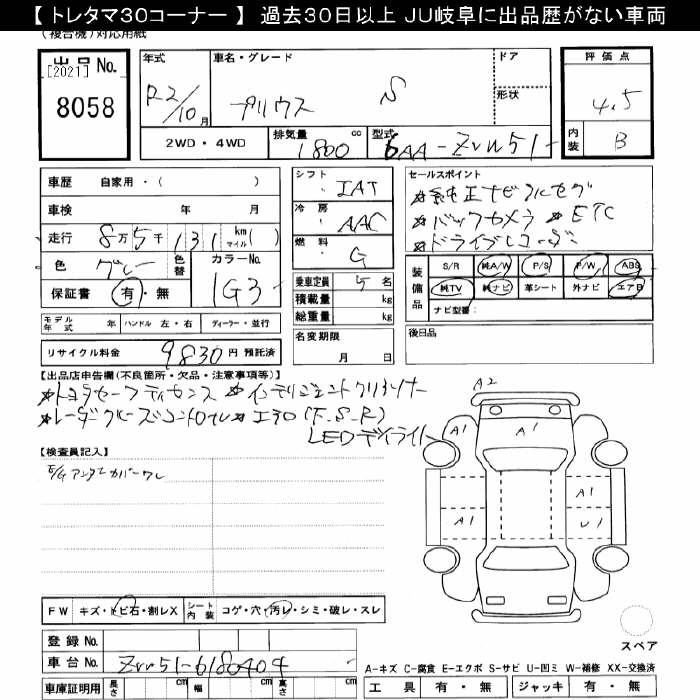 【 トレタマ30コーナー 】 過去30日以上 JU岐阜に出品歴がない車両
(複合機)対応用紙
出品 No.
[2021]
8058
年式
R2/10月
車名・グレード
プリウス S
ドア
形状
評価点
4.5
内装 B
2WD・4WD
排気量 1800 cc
型式 6AA-ZVW51-
車歴 自家用・( )
車検 年 月
走行 8万5千131 km マイル ( )
色 グレー 色替 カラーNo. 1G3
保証書 有・無
モデル年式 年 ハンドル 左・右 ディーラー・並行
リサイクル料金 9830円 預託済
シフト IAT
冷房 AAC
燃料 G
乗車定員 5 名
積載量 kg
総重量 kg
名変期限 月 日
セールスポイント
*純正ナビ フルセグ
*バックカメラ *ETC
*ドライブレコーダー
装備品 S/R 純A/W P/S P/W ABS
純TV 純ナビ 革シート 外ナビ エアB
ナビ型番:
後日品
【出品店申告欄(不良箇所・欠品・注意事項等)】
*トヨタセーフティセンス *インテリジェントクリアランスソナー
*レーダークルーズコントロール *エアロ(F.S.R)
LEDデイライト
【検査員記入】
E/Gアンダーカバーワレ
A2
A1
A1
A1
A1
U1
FW キズ・トビ石・割レX シート内装 コゲ・穴・汚レ・シミ・破レ・スレ
登録 No.
車台 No. ZVW51-6180404
車庫証明用 長さ cm 幅 cm 高さ cm
スペア
A-キズ C-腐食 E-エクボ S-サビ U-凹ミ W-補修 XX-交換済
工具 有・無 ジャッキ 有・無